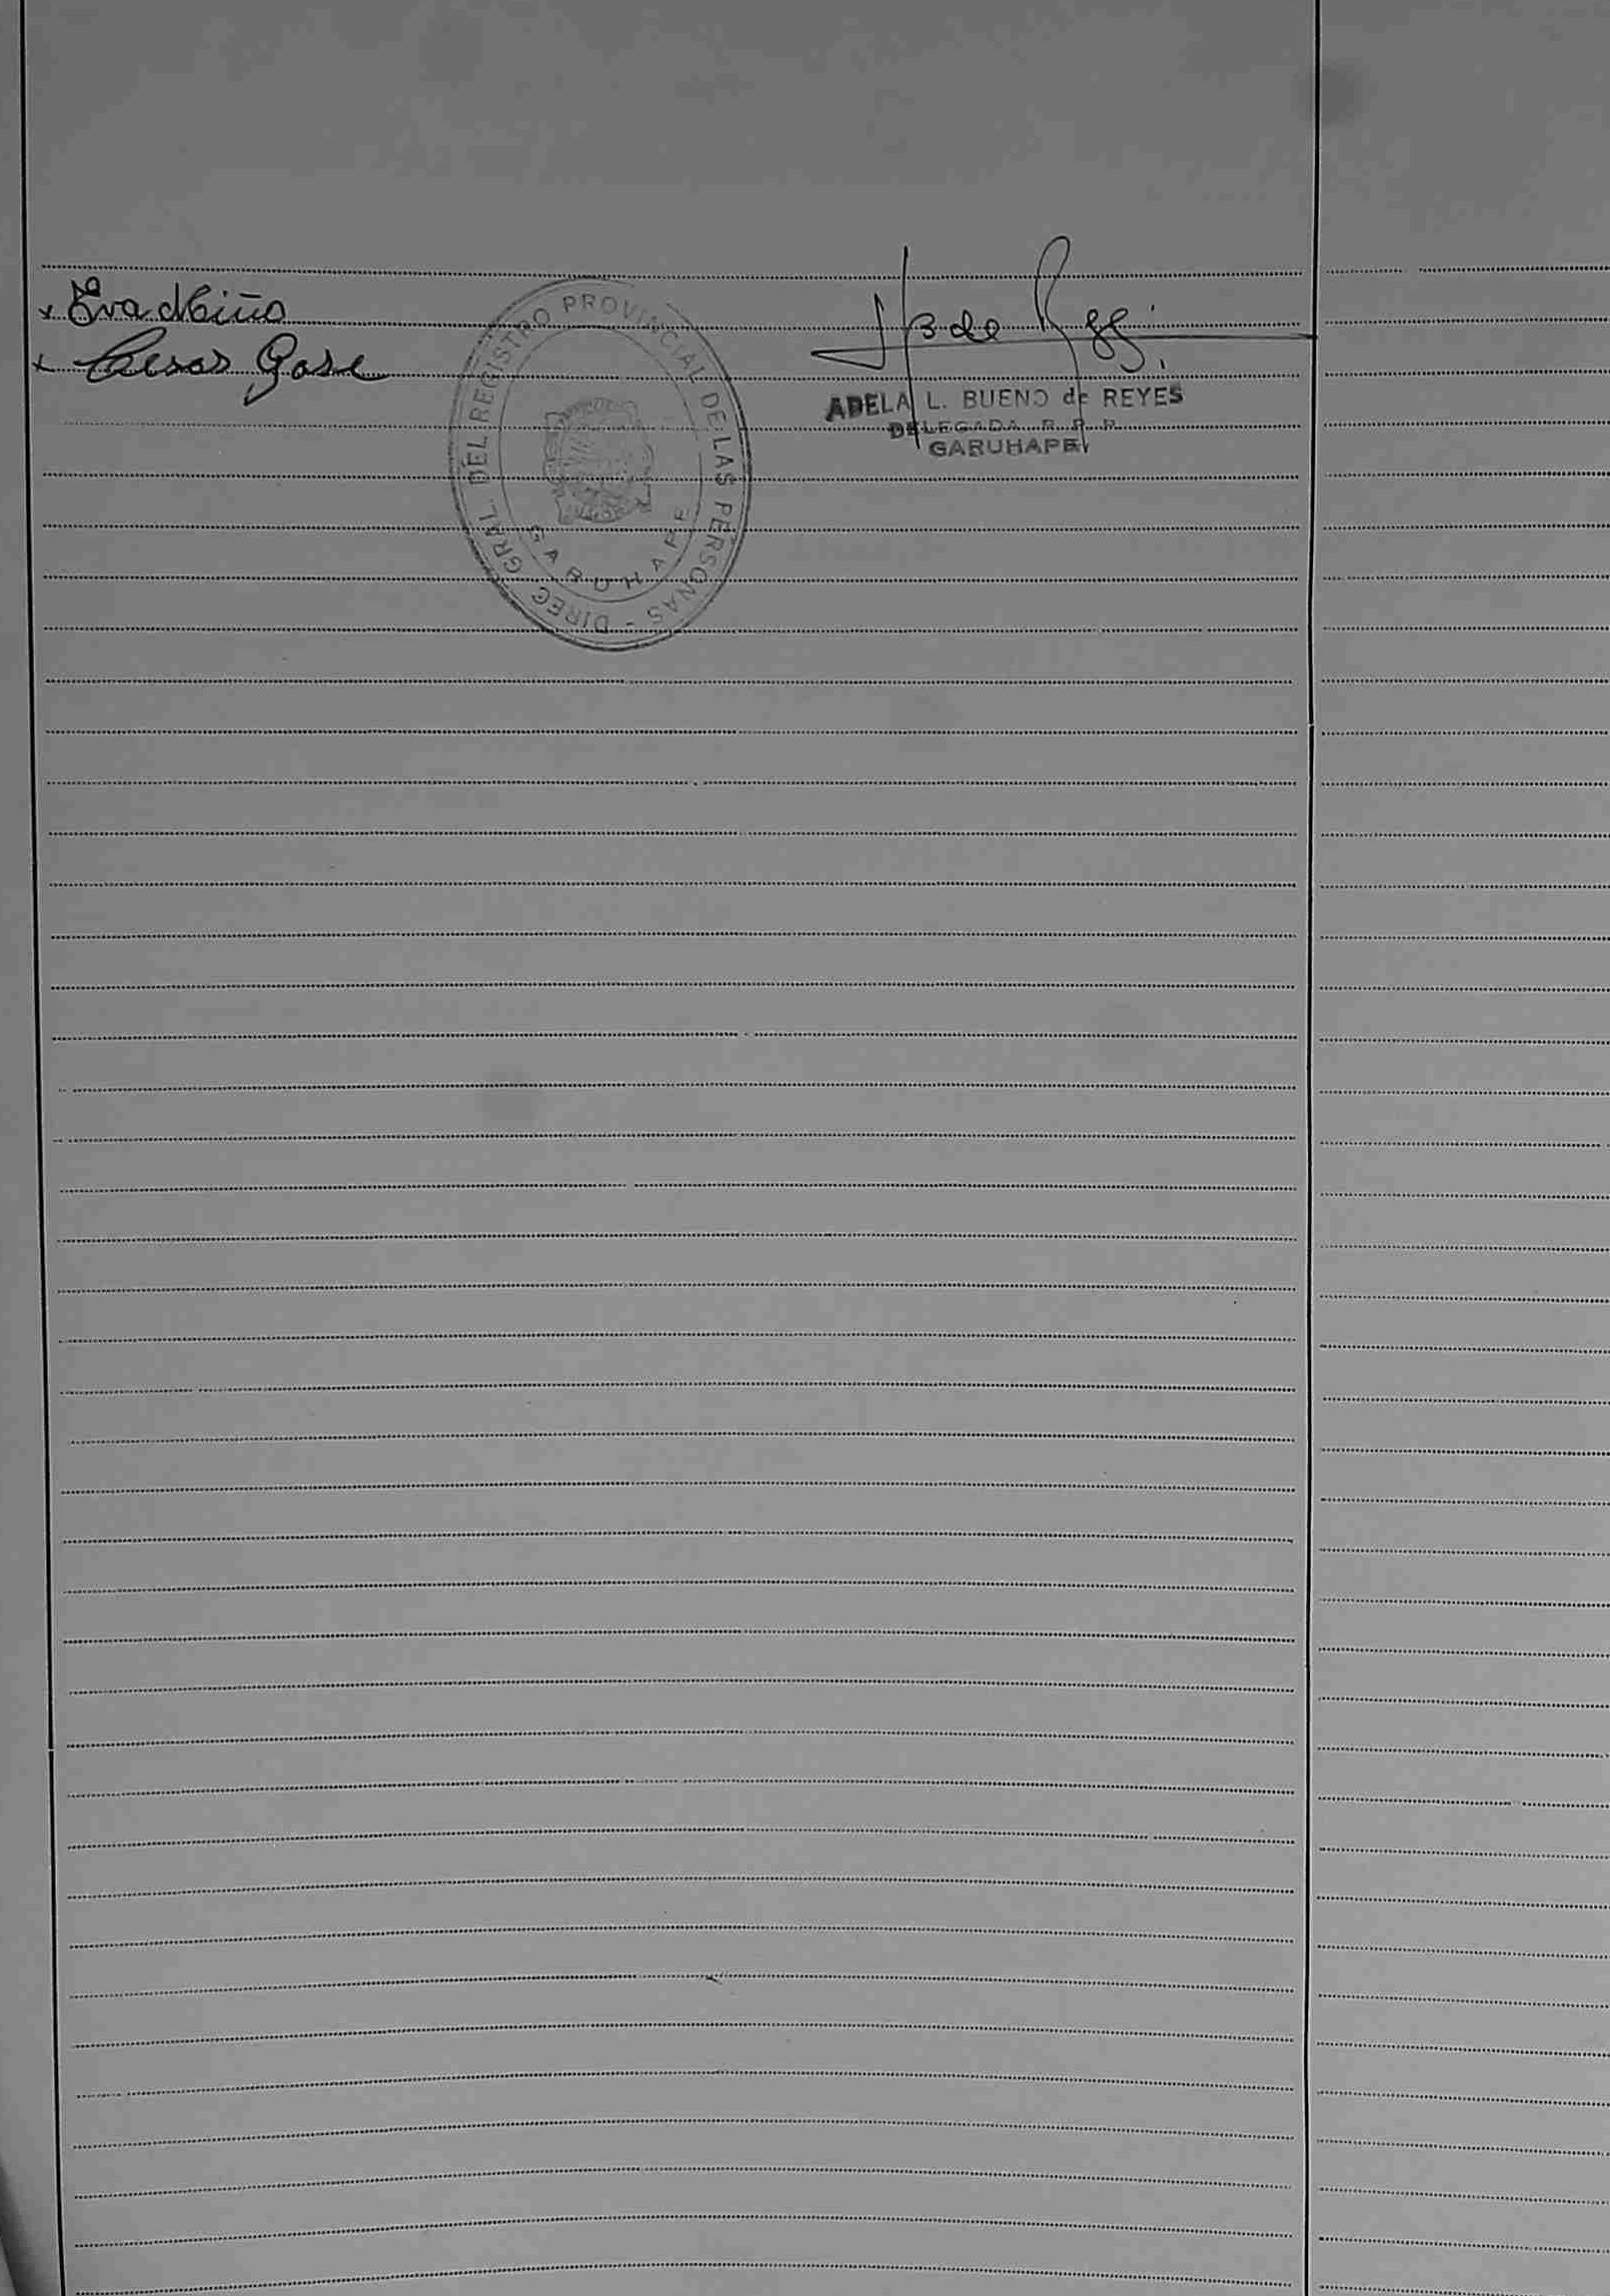 x Eva Miño
x Cesar Gase
DIREC. GRAL. DEL REGISTRO PROVINCIAL DE LAS PERSONAS -
GARUHAPE
ADELA L. BUENO de REYES
DELEGADA R. P. P.
GARUHAPE